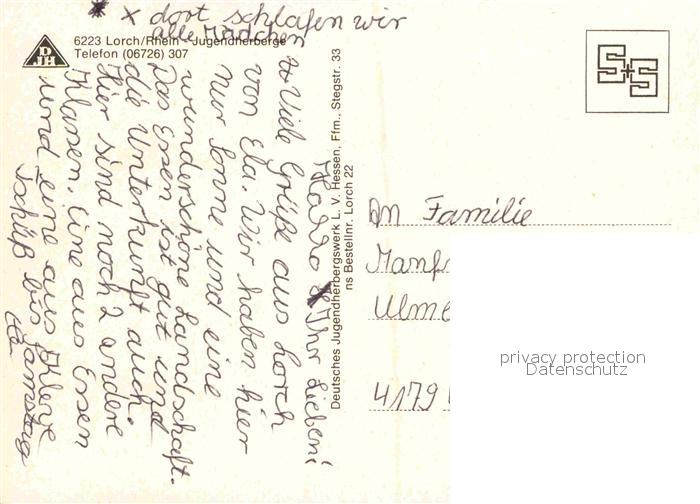 * x dort schlafen wir
alle Mädchen
DJH
6223 Lorch/Rhein - Jugendherberge
Telefon (06726) 307
Hallo Ihr Lieben!
Viele Grüße aus Lorch
von Ela. Wir haben hier
nur Sonne und eine
wunderschöne Landschaft.
Das Essen ist gut und
die Unterkunft auch.
Hier sind noch 2 andere
Klassen. Eine aus Essen
und eine aus Kleve
Tschüß bis Samstag
Deutsches Jugendherbergswerk L. V. Hessen, Ffm., Stegstr. 33
ns Bestellnr. Lorch 22
S+S
An Familie
Manf
Ulme
4179
privacy protection
Datenschutz